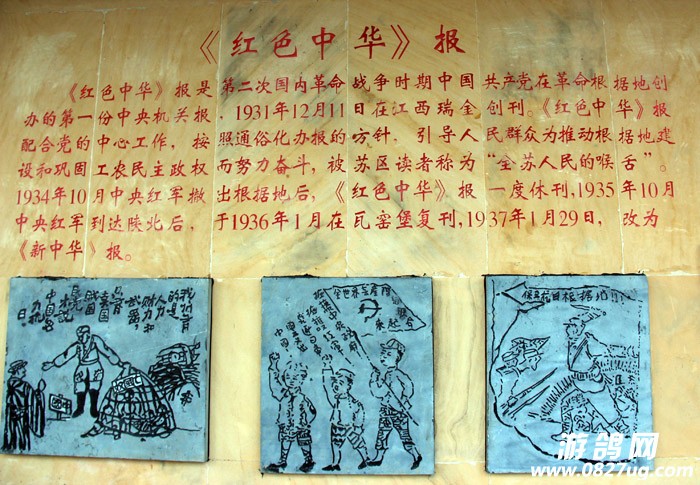 《红色中华》报
《红色中华》报是第二次国内革命战争时期中国共产党在革命根据地创
办的第一份中央机关报，1931年12月11日在江西瑞金创刊。《红色中华》报
配合党的中心工作，按照通俗化办报的方针，引导人民群众为推动根据地建
设和巩固工农民主政权而努力奋斗，被苏区读者称为“全苏人民的喉舌”。
1934年10月中央红军撤出根据地后，《红色中华》报一度休刊，1935年10月
中央红军到达陕北后，于1936年1月在瓦窑堡复刊，1937年1月29日，改为
《新中华》报。
游鸽网
www.0827ug.com